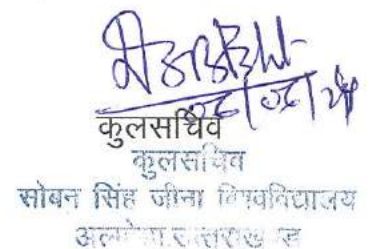 कुलसचिव
कुलसचिव
सोबन सिंह जीना विश्वविद्यालय
अल्मोड़ा उत्तराखण्ड